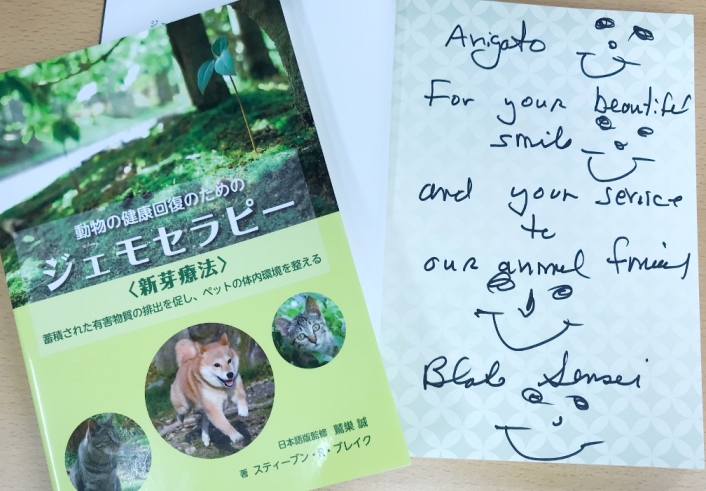 動物の健康回復のための
ジェモセラピー
〈新芽療法〉
蓄積された有害物質の排出を促し、ペットの体内環境を整える
日本語版監修 鷲巣 誠
著 スティーブン・R・ブレイク
Arigato
For your beautiful
smile
and your service
to
our animal friend
Blake Sensei